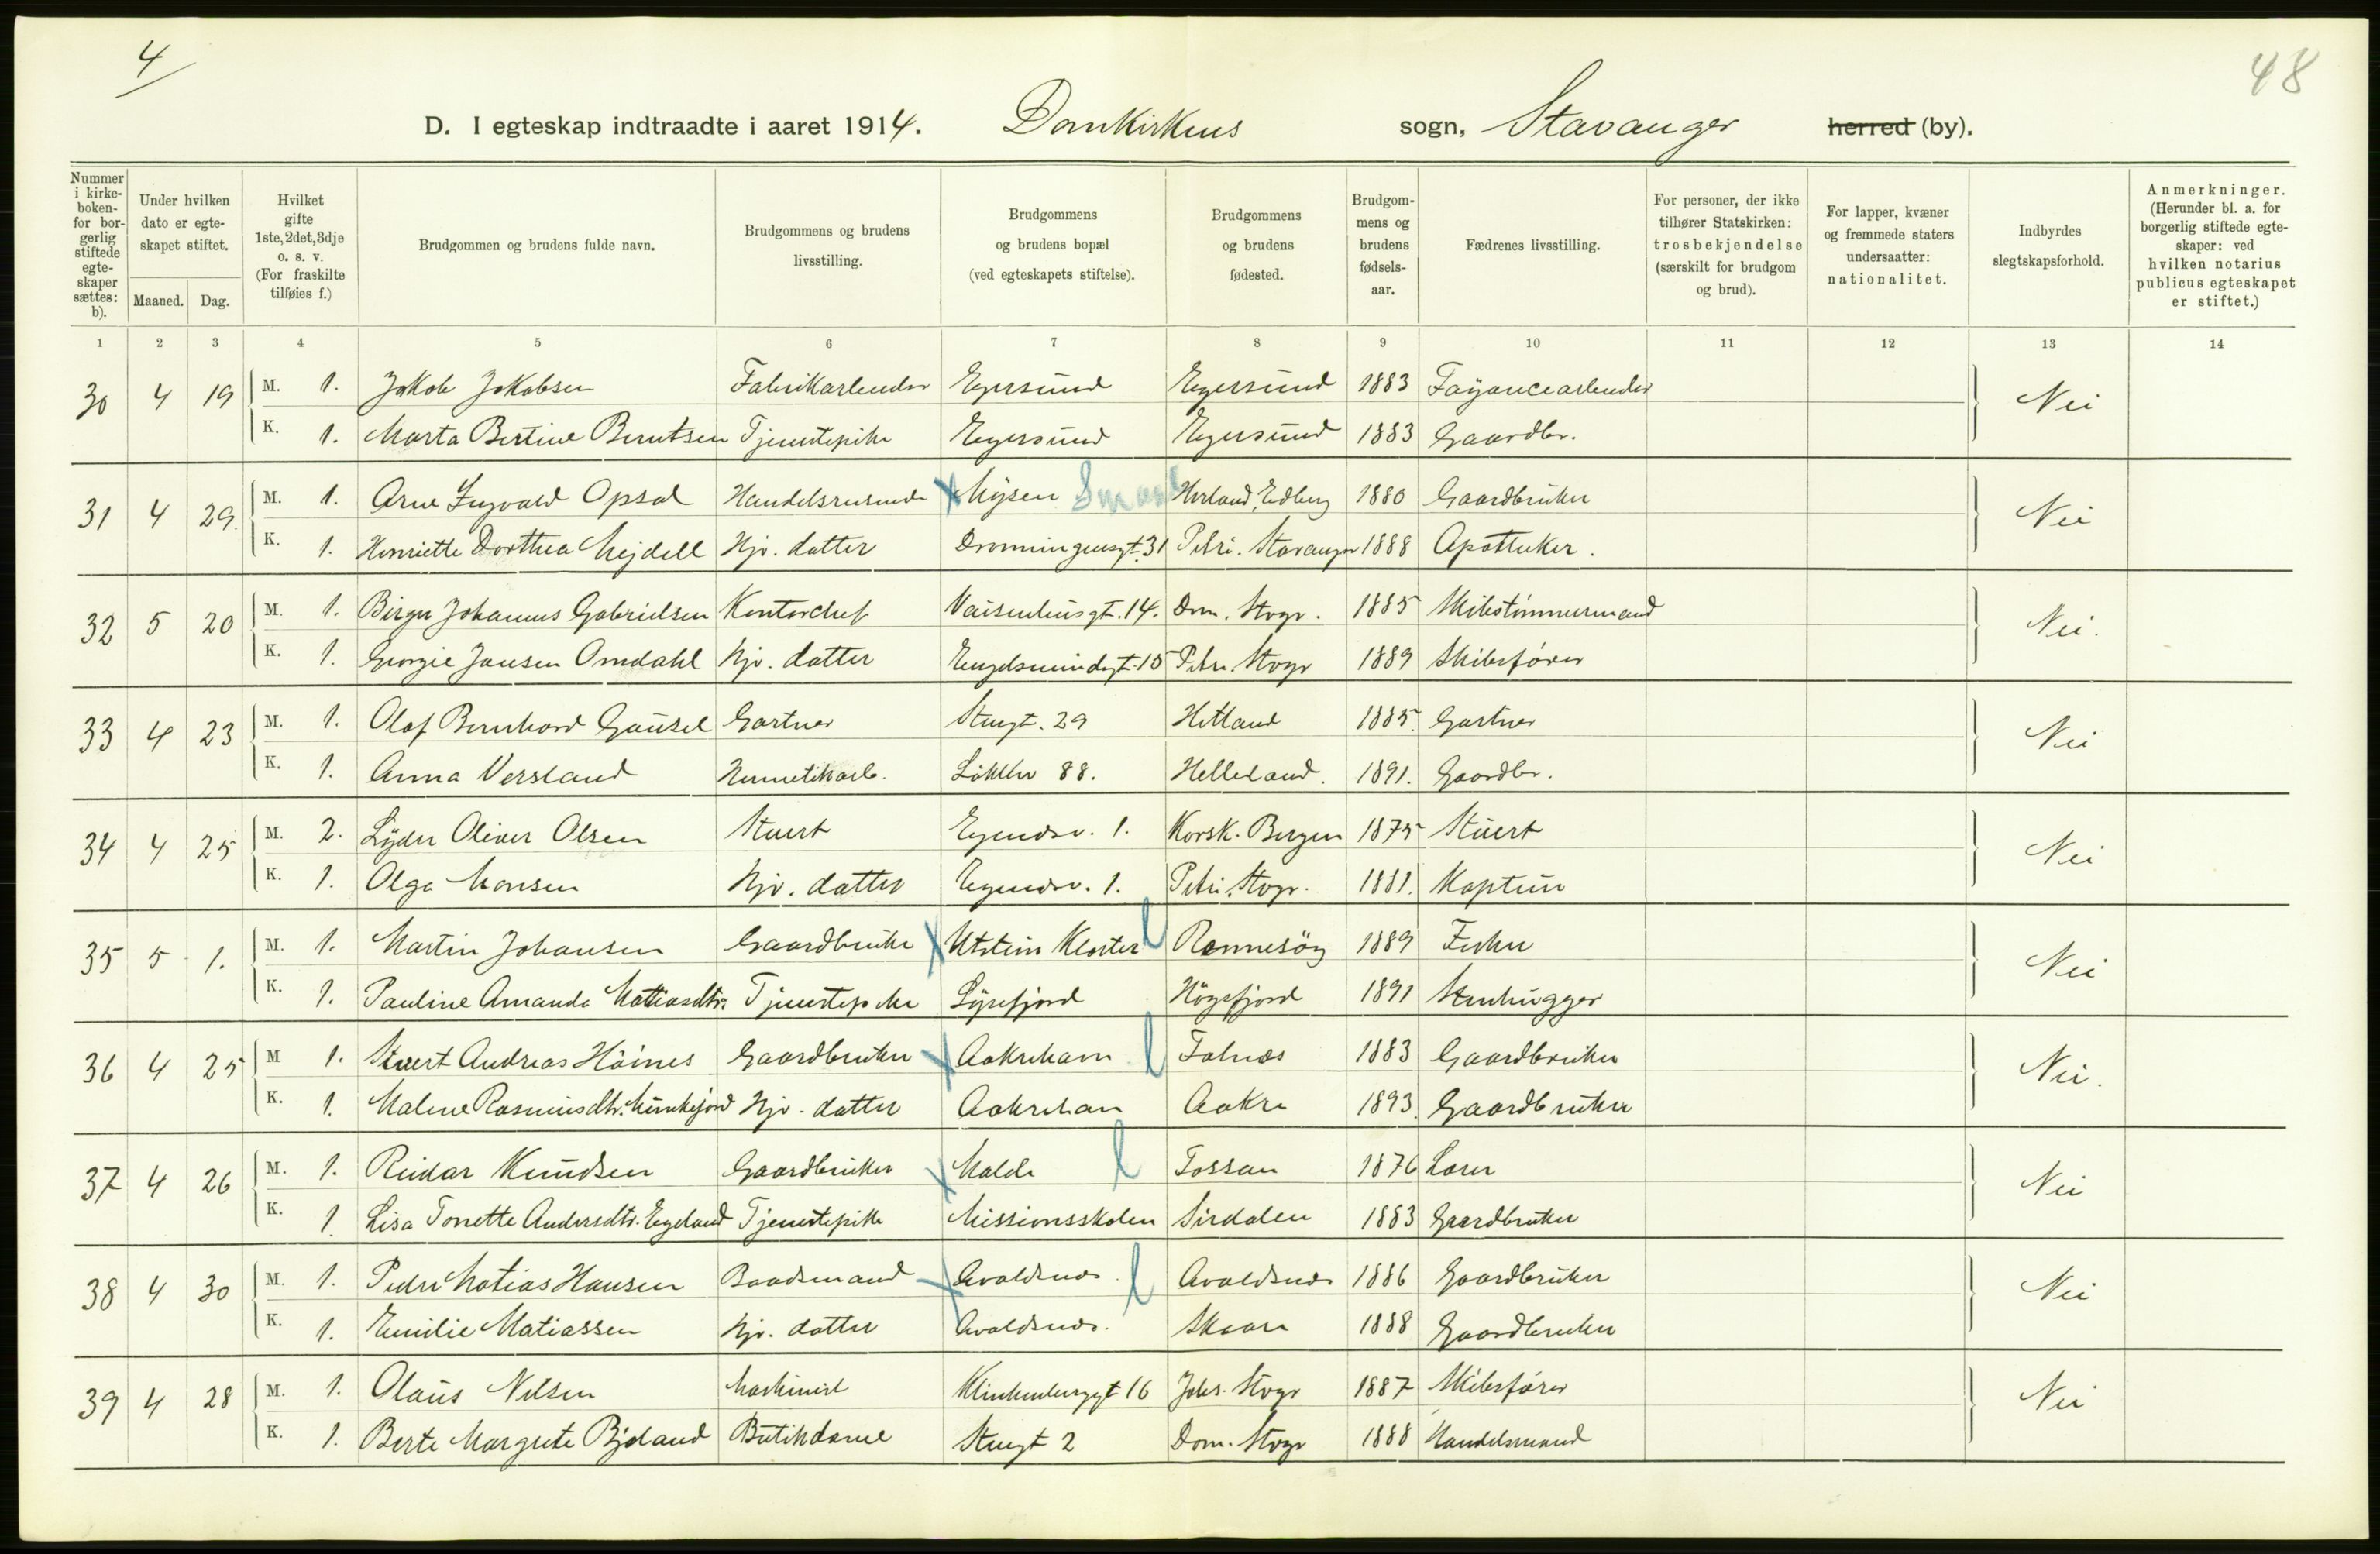 4
48
D. I egteskap indtraadte i aaret 1914. Domkirkens sogn, Stavanger herred (by).
Nummer i kirke-boken- for bor-gerlig stiftede egte-skaper sættes: b).
Under hvilken dato er egte-skapet stiftet.
Maaned. Dag.
Hvilket gifte 1ste, 2det, 3dje o. s. v. (For fraskilte tilføies f.)
Brudgommen og brudens fulde navn.
Brudgommens og brudens livsstilling.
Brudgommens og brudens bopæl (ved egteskapets stiftelse).
Brudgommens og brudens fødested.
Brudgom-mens og brudens fødsels-aar.
Fædrenes livsstilling.
For personer, der ikke tilhører Statskirken: trosbekjendelse (særskilt for brudgom og brud).
For lapper, kvæner og fremmede staters undersaatter: nationalitet.
Indbyrdes slegtskapsforhold.
Anmerkninger. (Herunder bl. a. for borgerlig stiftede egte-skaper: ved hvilken notarius publicus egteskapet er stiftet.)
1 2 3 4 5 6 7 8 9 10 11 12 13 14
30 4 19 M. 1. Jakob Jakobsen Fabrikarbeider Egersund Egersund 1883 Fayancearbeider Nei
K. 1. Marta Bertine Berntsen Tjenestepike Egersund Egersund 1883 Gaardbr.
31 4 29. M. 1. Arne Ingvald Opsal Handelsreisende Mysen Herland, Edberg 1880 Gaardbruker Nei
K. 1. Henriette Dorthea Mejdell Hjv. datter Dronningensgt. 31 Petri. Stavanger 1888 Apotheker.
32 5 20 M. 1. Birger Johannes Gabrielsen Kontorchef Vaisenhusgt. 14. Dom. Stvgr. 1885 Skibstømmermand Nei.
K. 1. Georgie Jansen Omdahl Hjv. datter Engelsmindegt. 15 Petri. Stvgr 1889 Skibsfører
33 4 23 M. 1. Olaf Bernhard Gausel Gartner Stengt. 29 Hetland 1885. Gartner Nei
K. 1. Anna Versland Hermetikarb. Løkkev 88. Helleland. 1891. Gaardbr.
34 4 25 M. 2. Lyder Oliver Olsen Stuert Egenesv. 1. Korsk. Bergen 1875 Stuert Nei
K. 1. Olga Monsen Hjv. datter Egenesv. 1. Petri. Stvgr. 1881. Kaptein
35 5 1. M. 1. Martin Johansen Gaardbruker Utstein Kloster Rennesøy 1889 Fisker Nei
K. 1. Pauline Amanda Mattiasdtr. Tjenestepike Lysefjord Høgsfjord 1891 Stenhugger
36 4 25 M 1. Sivert Andreas Høines Gaardbruker Aakrehavn Falnæs 1883 Gaardbruker Nei.
K. 1. Malene Rasmusdtr. Munkejord Hjv. datter Aakrehavn Aakre 1893. Gaardbruker
37 4 26 M. 1. Reidar Knudsen Gaardbruker Malde Fossan 1876 Lærer Nei
K. 1. Lisa Tonette Andersdtr. Egeland Tjenestepike Missionsskolen Sirdalen 1883 Gaardbruker
38 4 30 M. 1. Peder Matias Hansen Baadsmand Avaldsnes Avaldsnes 1886 Gaardbruker Nei
K. 1. Emilie Matiassen Hjv. datter Avaldsnes. Skaare 1888 Gaardbruker
39 4 28 M. 1. Olaus Nilsen Maskinist Klinkenberggt 16 Johs. Stvgr 1887 Skibsfører Nei
K. 1. Berte Margrete Bjeland Butikdame Stengt 2 Dom. Stvgr 1888 Handelsmand